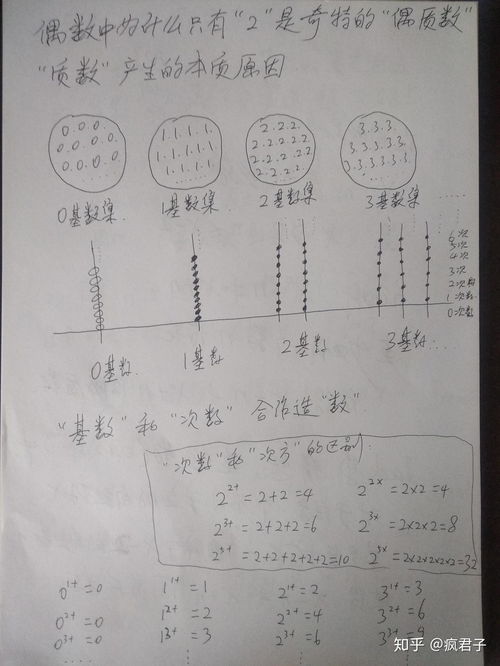 偶数中为什么只有"2"是奇特的"偶质数"
"质数"产生的本质原因
0.0.0.
0.0.0.0.
0.0.0.0.
1.1.1.1.
1.1.1.1.1.
1.1.1.1.1.
......
2.2.2.
2.2.2.2.2.
2.2.2.2.2.
2.2.2.2.
3.3.3.
3.3.3.3.3.
0.3.3.3.3.3.
......
0基数集.
1基数集.
2基数集.
3基数集. ......
6次
5次
4次
3次
2次数
1次数
0次数
0基数.
1基数
2基数
3基数....
"基数"和"次数" 合作造"数".
"次数"和"次方"的区别:
2²⁺=2+2=4 2²ˣ=2×2=4
2³⁺=2+2+2=6 2³ˣ=2×2×2=8
2⁵⁺=2+2+2+2+2=10 2⁵ˣ=2×2×2×2×2=32
0¹⁺=0 1¹⁺=1 2¹⁺=2 3¹⁺=3
0²⁺=0 1²⁺=2 2²⁺=4 3²⁺=6
0³⁺=0 1³⁺=3 2³⁺=6 3³⁺=9
知乎 @疯君子